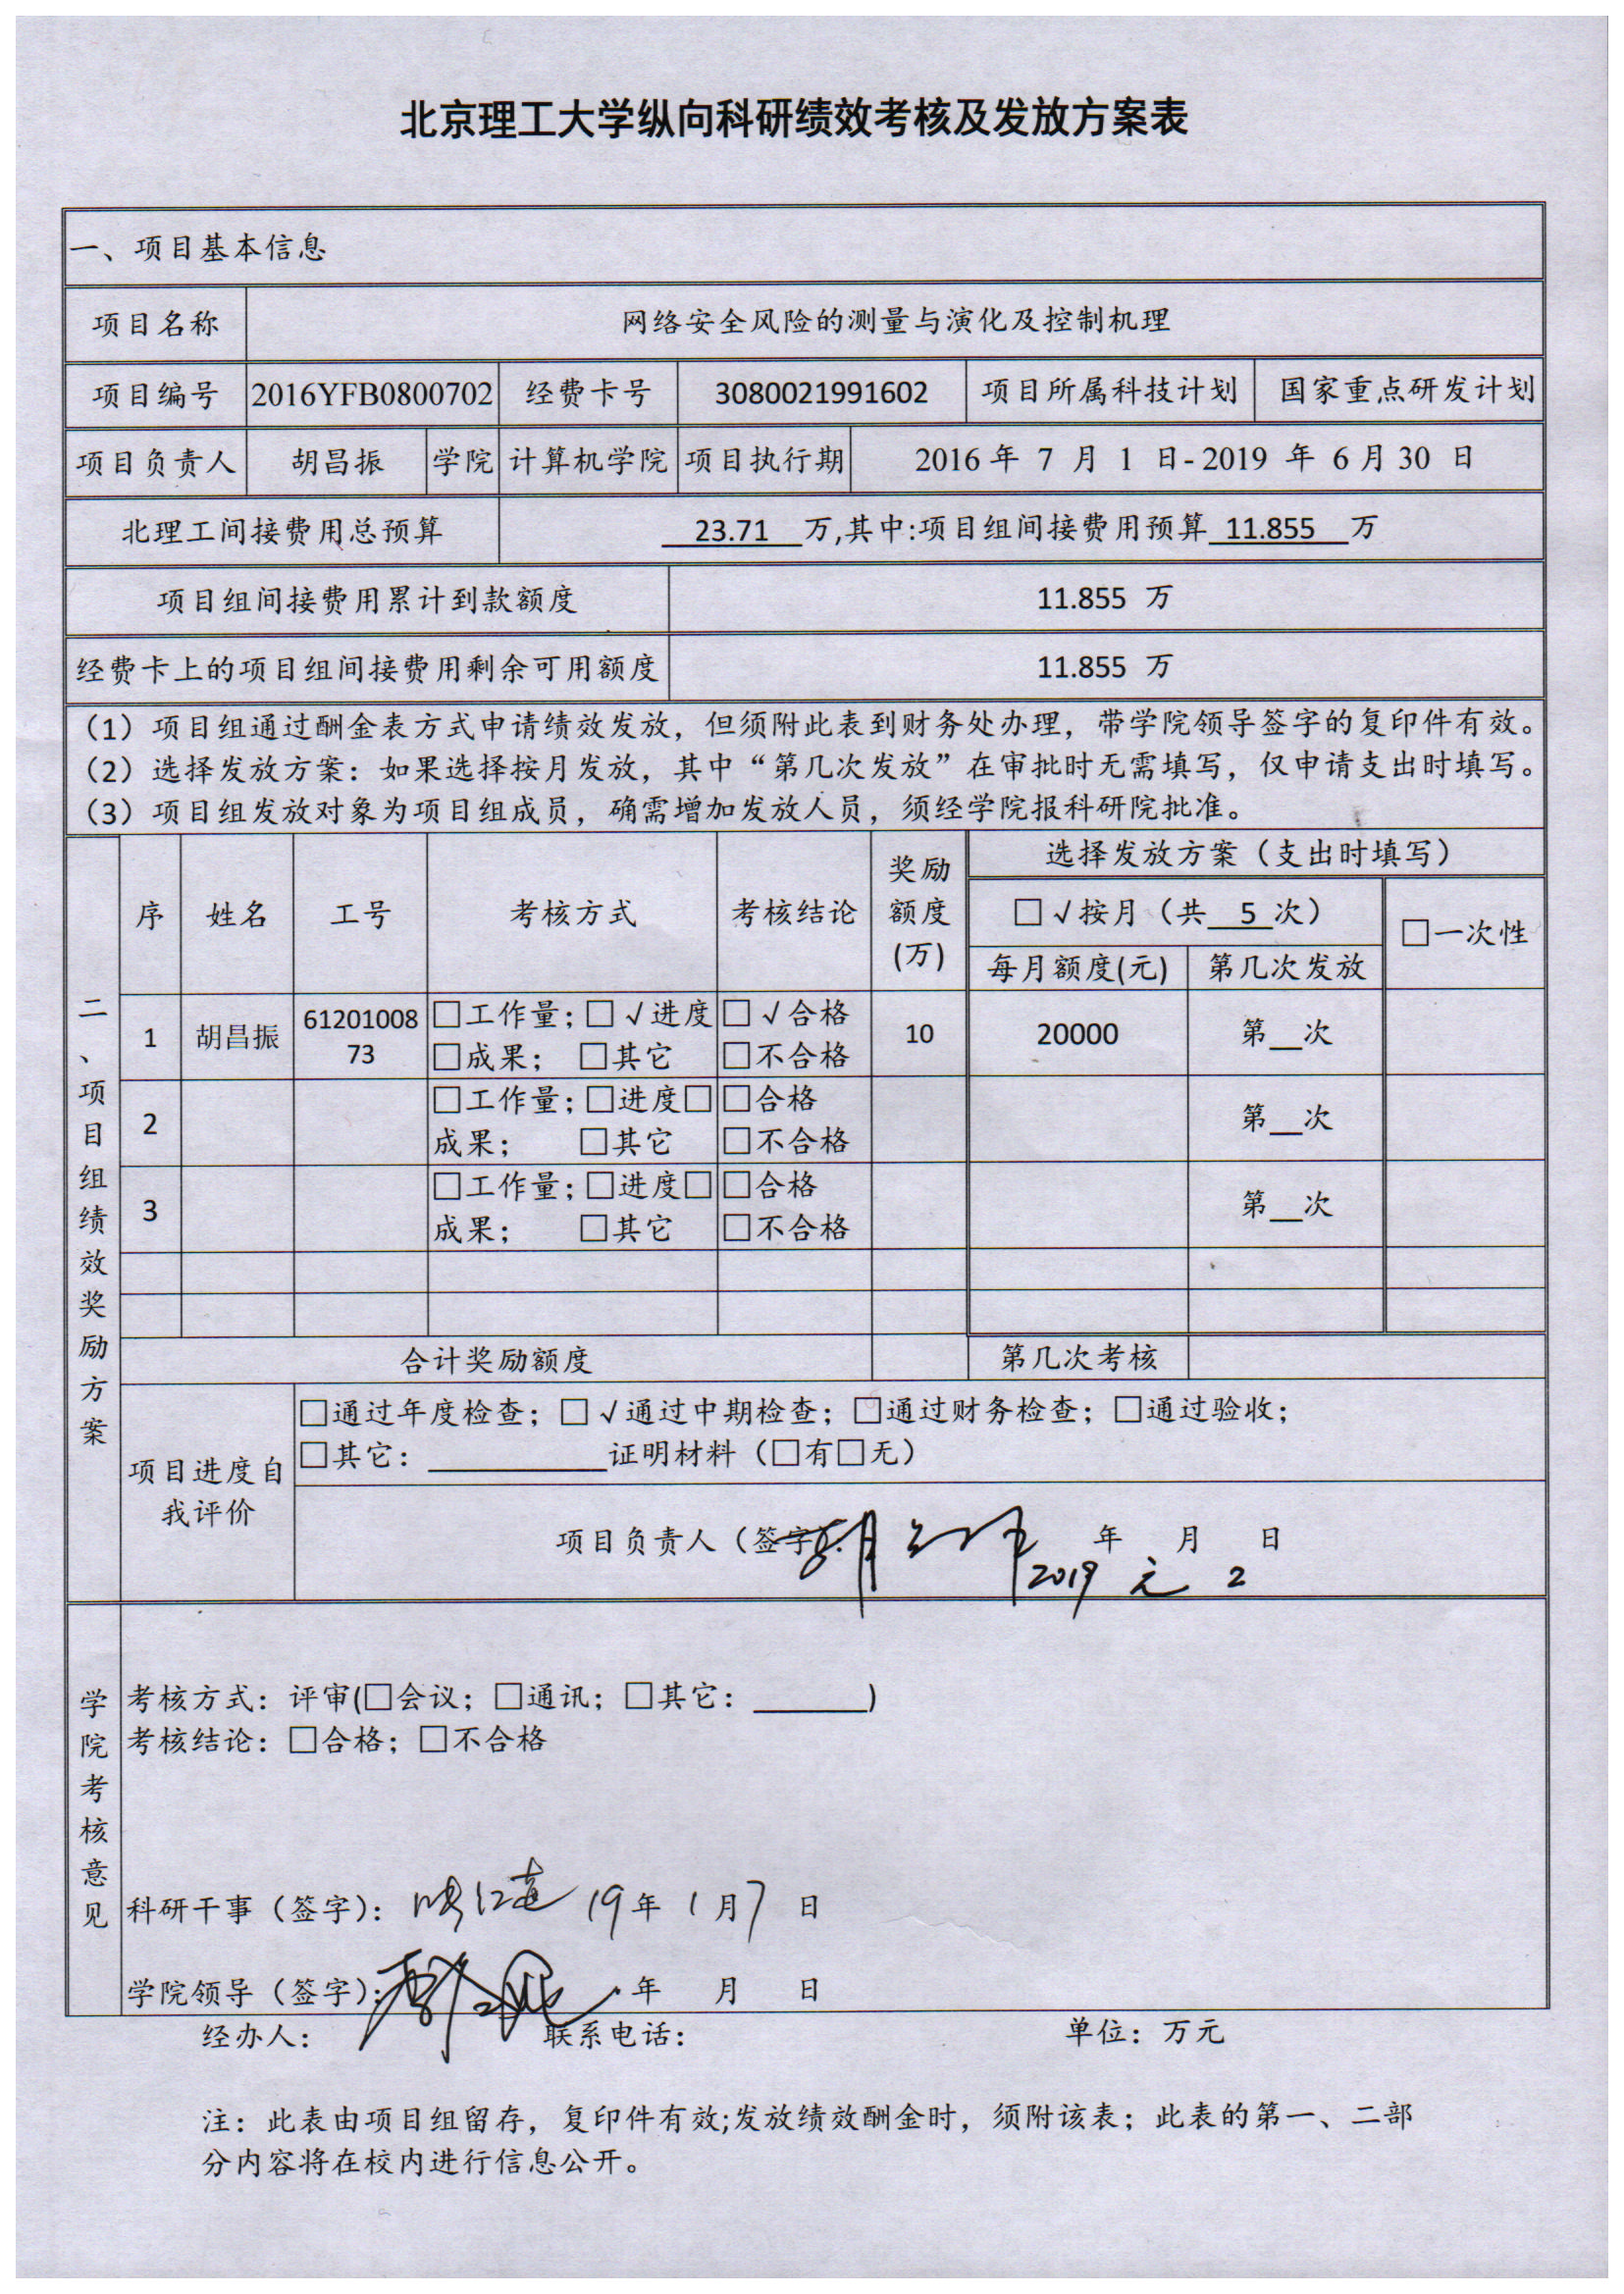 北京理工大学纵向科研绩效考核及发放方案表
一、项目基本信息
项目名称 网络安全风险的测量与演化及控制机理
项目编号 2016YFB0800702 经费卡号 3080021991602 项目所属科技计划 国家重点研发计划
项目负责人 胡昌振 学院 计算机学院 项目执行期 2016 年 7 月 1 日-2019 年 6月30 日
北理工间接费用总预算 23.71 万,其中:项目组间接费用预算 11.855 万
项目组间接费用累计到款额度 11.855 万
经费卡上的项目组间接费用剩余可用额度 11.855 万
（1）项目组通过酬金表方式申请绩效发放，但须附此表到财务处办理，带学院领导签字的复印件有效。
（2）选择发放方案：如果选择按月发放，其中“第几次发放”在审批时无需填写，仅申请支出时填写。
（3）项目组发放对象为项目组成员，确需增加发放人员，须经学院报科研院批准。
二、项目组绩效奖励方案
序 姓名 工号 考核方式 考核结论 奖励额度(万) 选择发放方案（支出时填写）
□√按月（共 5 次） □一次性
每月额度(元) 第几次发放
1 胡昌振 6120100873 □工作量；□√进度 □√合格 10 20000 第__次
□成果； □其它 □不合格
2 □工作量；□进度□ □合格 第__次
成果； □其它 □不合格
3 □工作量；□进度□ □合格 第__次
成果； □其它 □不合格
合计奖励额度 第几次考核
项目进度自我评价
□通过年度检查；□√通过中期检查；□通过财务检查；□通过验收；
□其它：__________证明材料（□有□无）
项目负责人（签字）： 年 月 日
2019 元 2
学院考核意见
考核方式：评审(□会议；□通讯；□其它：_______)
考核结论：□合格；□不合格
科研干事（签字）： 19年 1 月7 日
学院领导（签字）： 年 月 日
经办人： 联系电话： 单位：万元
注：此表由项目组留存，复印件有效;发放绩效酬金时，须附该表；此表的第一、二部
分内容将在校内进行信息公开。